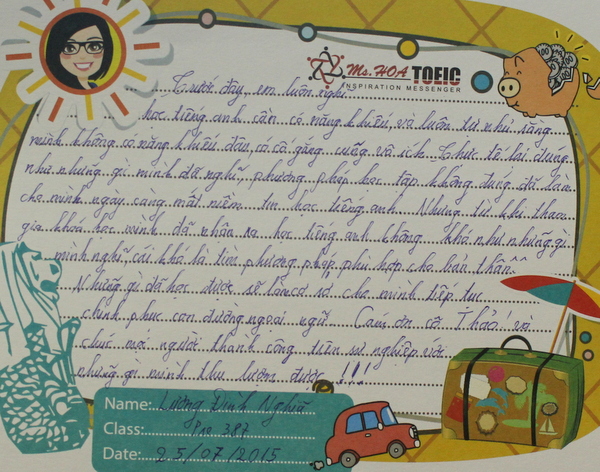 Ms.HOA TOEIC
INSPIRATION MESSENGER
Trước đây, em luôn nghĩ
học tiếng anh cần có năng khiếu, và luôn tự nhủ rằng
mình không có năng khiếu đâu, có cố gắng cũng vô ích. Thực tế lại đúng
như những gì mình đã nghĩ, phương pháp học tập không đúng đã làm
cho mình ngày càng mất niềm tin học tiếng anh. Nhưng từ khi tham
gia khoá học mình đã nhận ra học tiếng anh không khó như những gì
mình nghĩ cái khó là tìm phương pháp phù hợp cho bản thân ^^
Những gì đã học được sẽ làm cơ sở cho mình tiếp tục
chinh phục con đường ngoại ngữ. Cám ơn cô Thảo! và
chúc mọi người thành công trên sự nghiệp với
những gì mình thu lượm được !!!
Name: Lường Đình Nghĩa
Class: Pre 387
Date: 25/07/2015